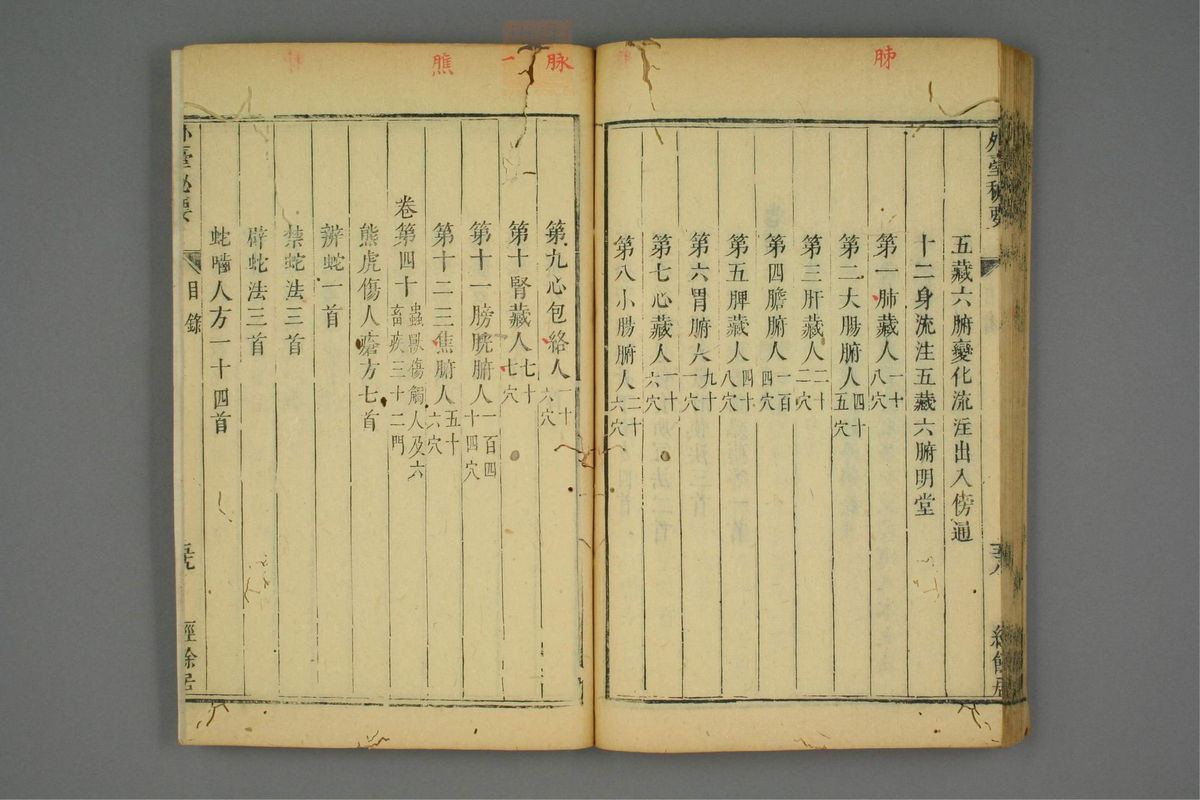 肺
外臺秘要
五藏六腑變化流注出入傍通
十二身流注五藏六腑明堂
第一肺藏人一十八穴
第二大腸腑人四十五穴
第三肝藏人二十二穴
第四膽腑人一百四穴
第五脾藏人四十八穴
第六胃腑人九十一穴
第七心藏人一十六穴
第八小腸腑人二十六穴
五八
經餘居
脉
一
膲
第九心包絡人一十六穴
第十腎藏人七十七穴
第十一膀胱腑人一百四十四穴
第十二三焦腑人五十六穴
卷第四十蟲獸傷觸人及六畜疾三十二門
熊虎傷人瘡方七首
辨蛇一首
禁蛇法三首
辟蛇法三首
蛇嚙人方一十四首
外臺秘要
目錄
五九
經餘居